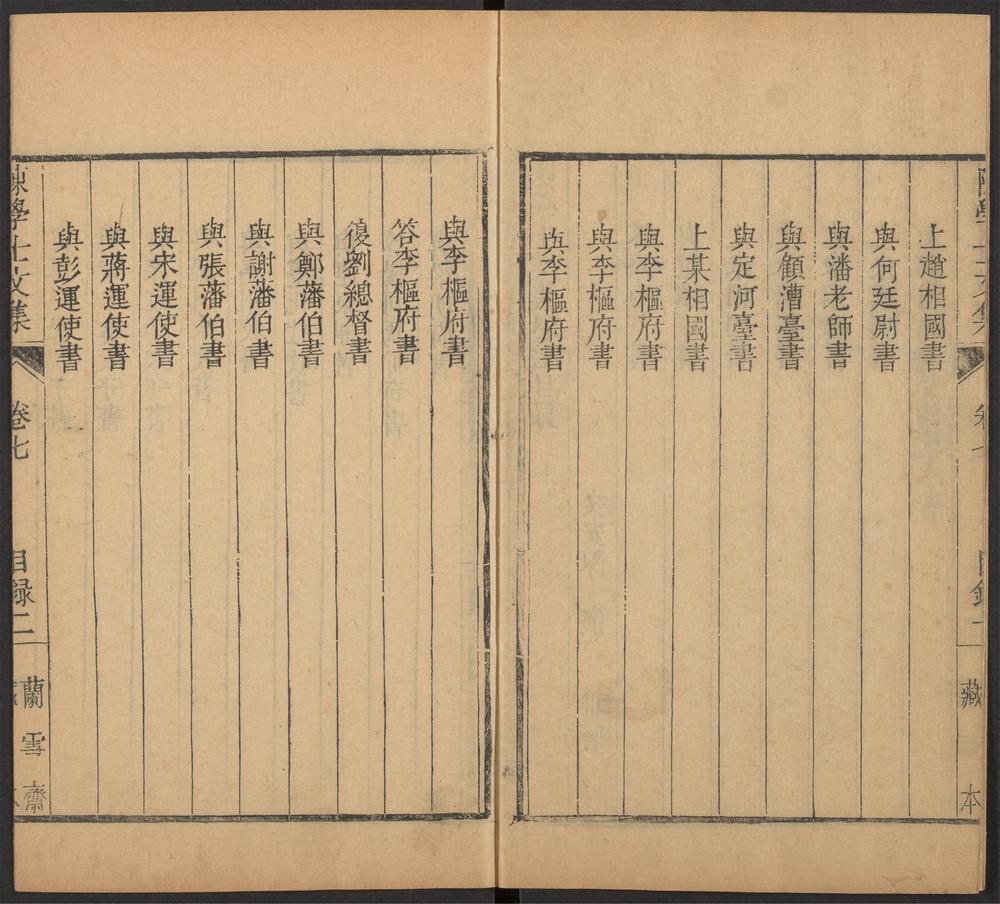 上趙相國書
與何廷尉書
與潘老師書
與顧漕臺書
與定河臺書
上某相國書
與李樞府書
與李樞府書
與李樞府書
藏本
與李樞府書
答李樞府書
復劉總督書
與鄭藩伯書
與謝藩伯書
與張藩伯書
與宋運使書
與蔣運使書
與彭運使書
陳學士文集 卷七 目録二 蘭雪齋